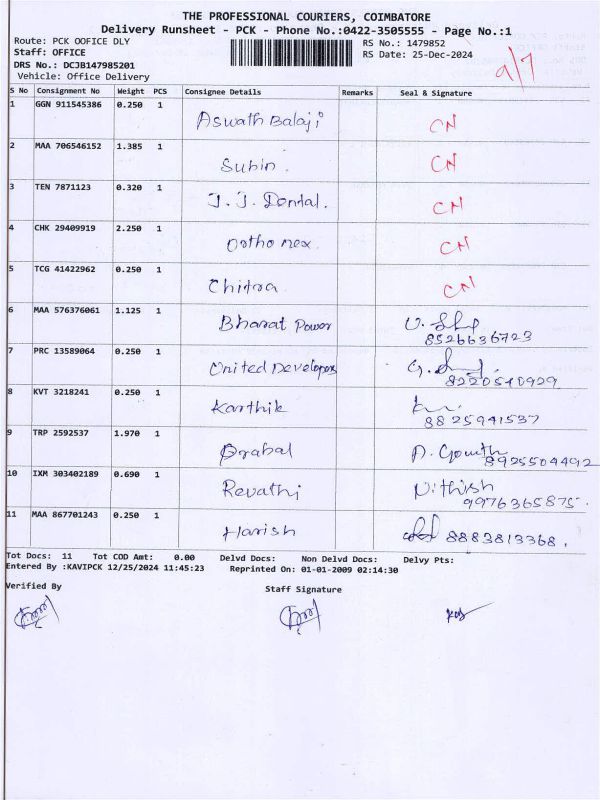 THE PROFESSIONAL COURIERS, COIMBATORE
Delivery Runsheet - PCK - Phone No.:0422-3505555 - Page No.:1
Route: PCK OOFICE DLY
RS No.: 1479852
Staff: OFFICE
RS Date: 25-Dec-2024
DRS No.: DCJB147985201
Vehicle: Office Delivery
S No Consignment No Weight PCS Consignee Details Remarks Seal & Signature
1 GGN 911545386 0.250 1 Aswath Balaji CN
2 MAA 706546152 1.385 1 Subin . CN
3 TEN 7871123 0.320 1 J. J. Dental. CN
4 CHK 29409919 2.250 1 Ortho nex. CN
5 TCG 41422962 0.250 1 Chitra CN
6 MAA 576376061 1.125 1 Bharat Power
8526636723
7 PRC 13589064 0.250 1 United Developers
8220540929
8 KVT 3218241 0.250 1 Karthik
8825941537
9 TRP 2592537 1.970 1 Prabal
8925504492
10 IXM 303402189 0.690 1 Revathi Nithish
9976365875.
11 MAA 867701243 0.250 1 Harish 8883813368.
Tot Docs: 11 Tot COD Amt: 0.00 Delvd Docs: Non Delvd Docs: Delvy Pts:
Entered By :KAVIPCK 12/25/2024 11:45:23 Reprinted On: 01-01-2009 02:14:30
Verified By
Staff Signature